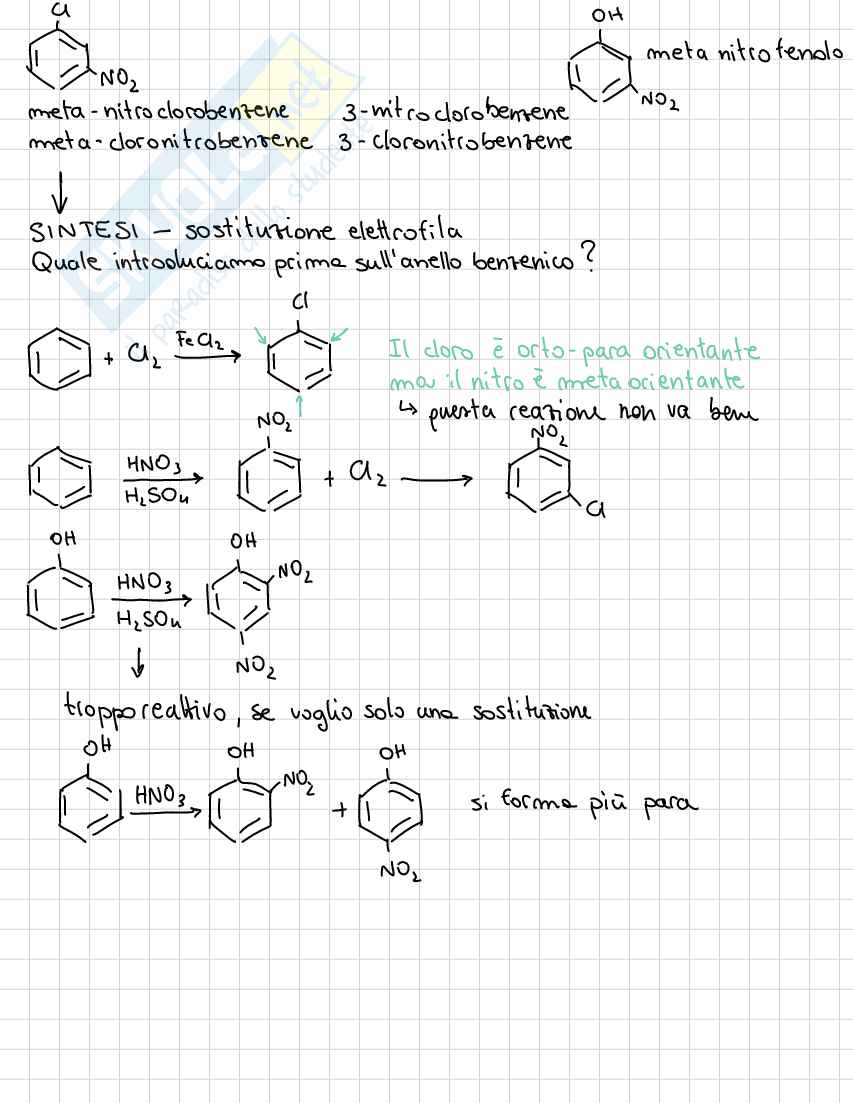 Cl
OH
NO2
meta nitrofenolo
NO2
meta-nitroclorobenzene 3-nitroclorobenzene
meta-cloronitrobenzene 3-cloronitrobenzene
SINTESI - sostituzione elettrofila
Quale introduciamo prima sull'anello benzenico?
Cl
+ Cl2 FeCl2
Il cloro è orto-para orientante
ma il nitro è meta orientante
↳ questa reazione non va bene
NO2
NO2
HNO3
H2SO4
+ Cl2
Cl
OH
OH
NO2
HNO3
H2SO4
NO2
troppo reattivo, se voglio solo una sostituzione
OH
OH
NO2
OH
HNO3
+
si forma più para
NO2
SKUOLA.net
paradiso dello studente